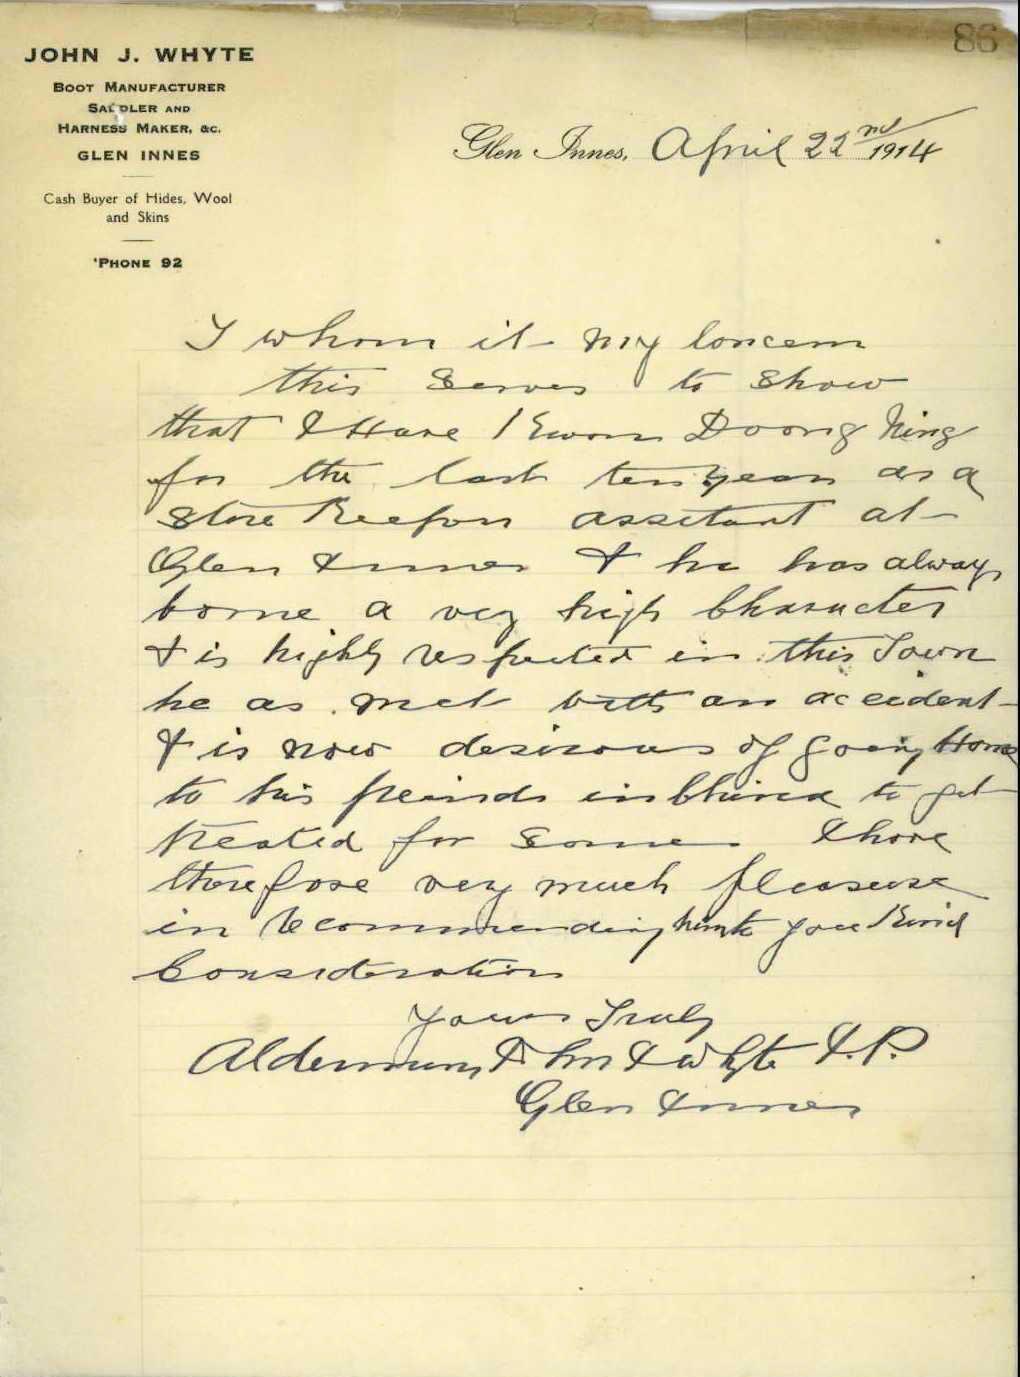 86
JOHN J. WHYTE
BOOT MANUFACTURER
SADDLER AND
HARNESS MAKER, &C.
GLEN INNES
Cash Buyer of Hides, Wool
and Skins
'PHONE 92
Glen Innes, April 22nd 1914
T whom it my Concern
this serves to show
that I Have Known Doong Ning
for the last ten years as a
Store Keepers assitant at
Glen Innes & he has always
borne a very high Character
& is highly respected in this Town
he as met with an accident
& is now desirous of going Home
to his freinds in China to get
treated for same I have
therefore very much pleasure
in recommending him to your Kind
Consideration
Yours Truly
Alderman John J Whyte J.P.
Glen Innes